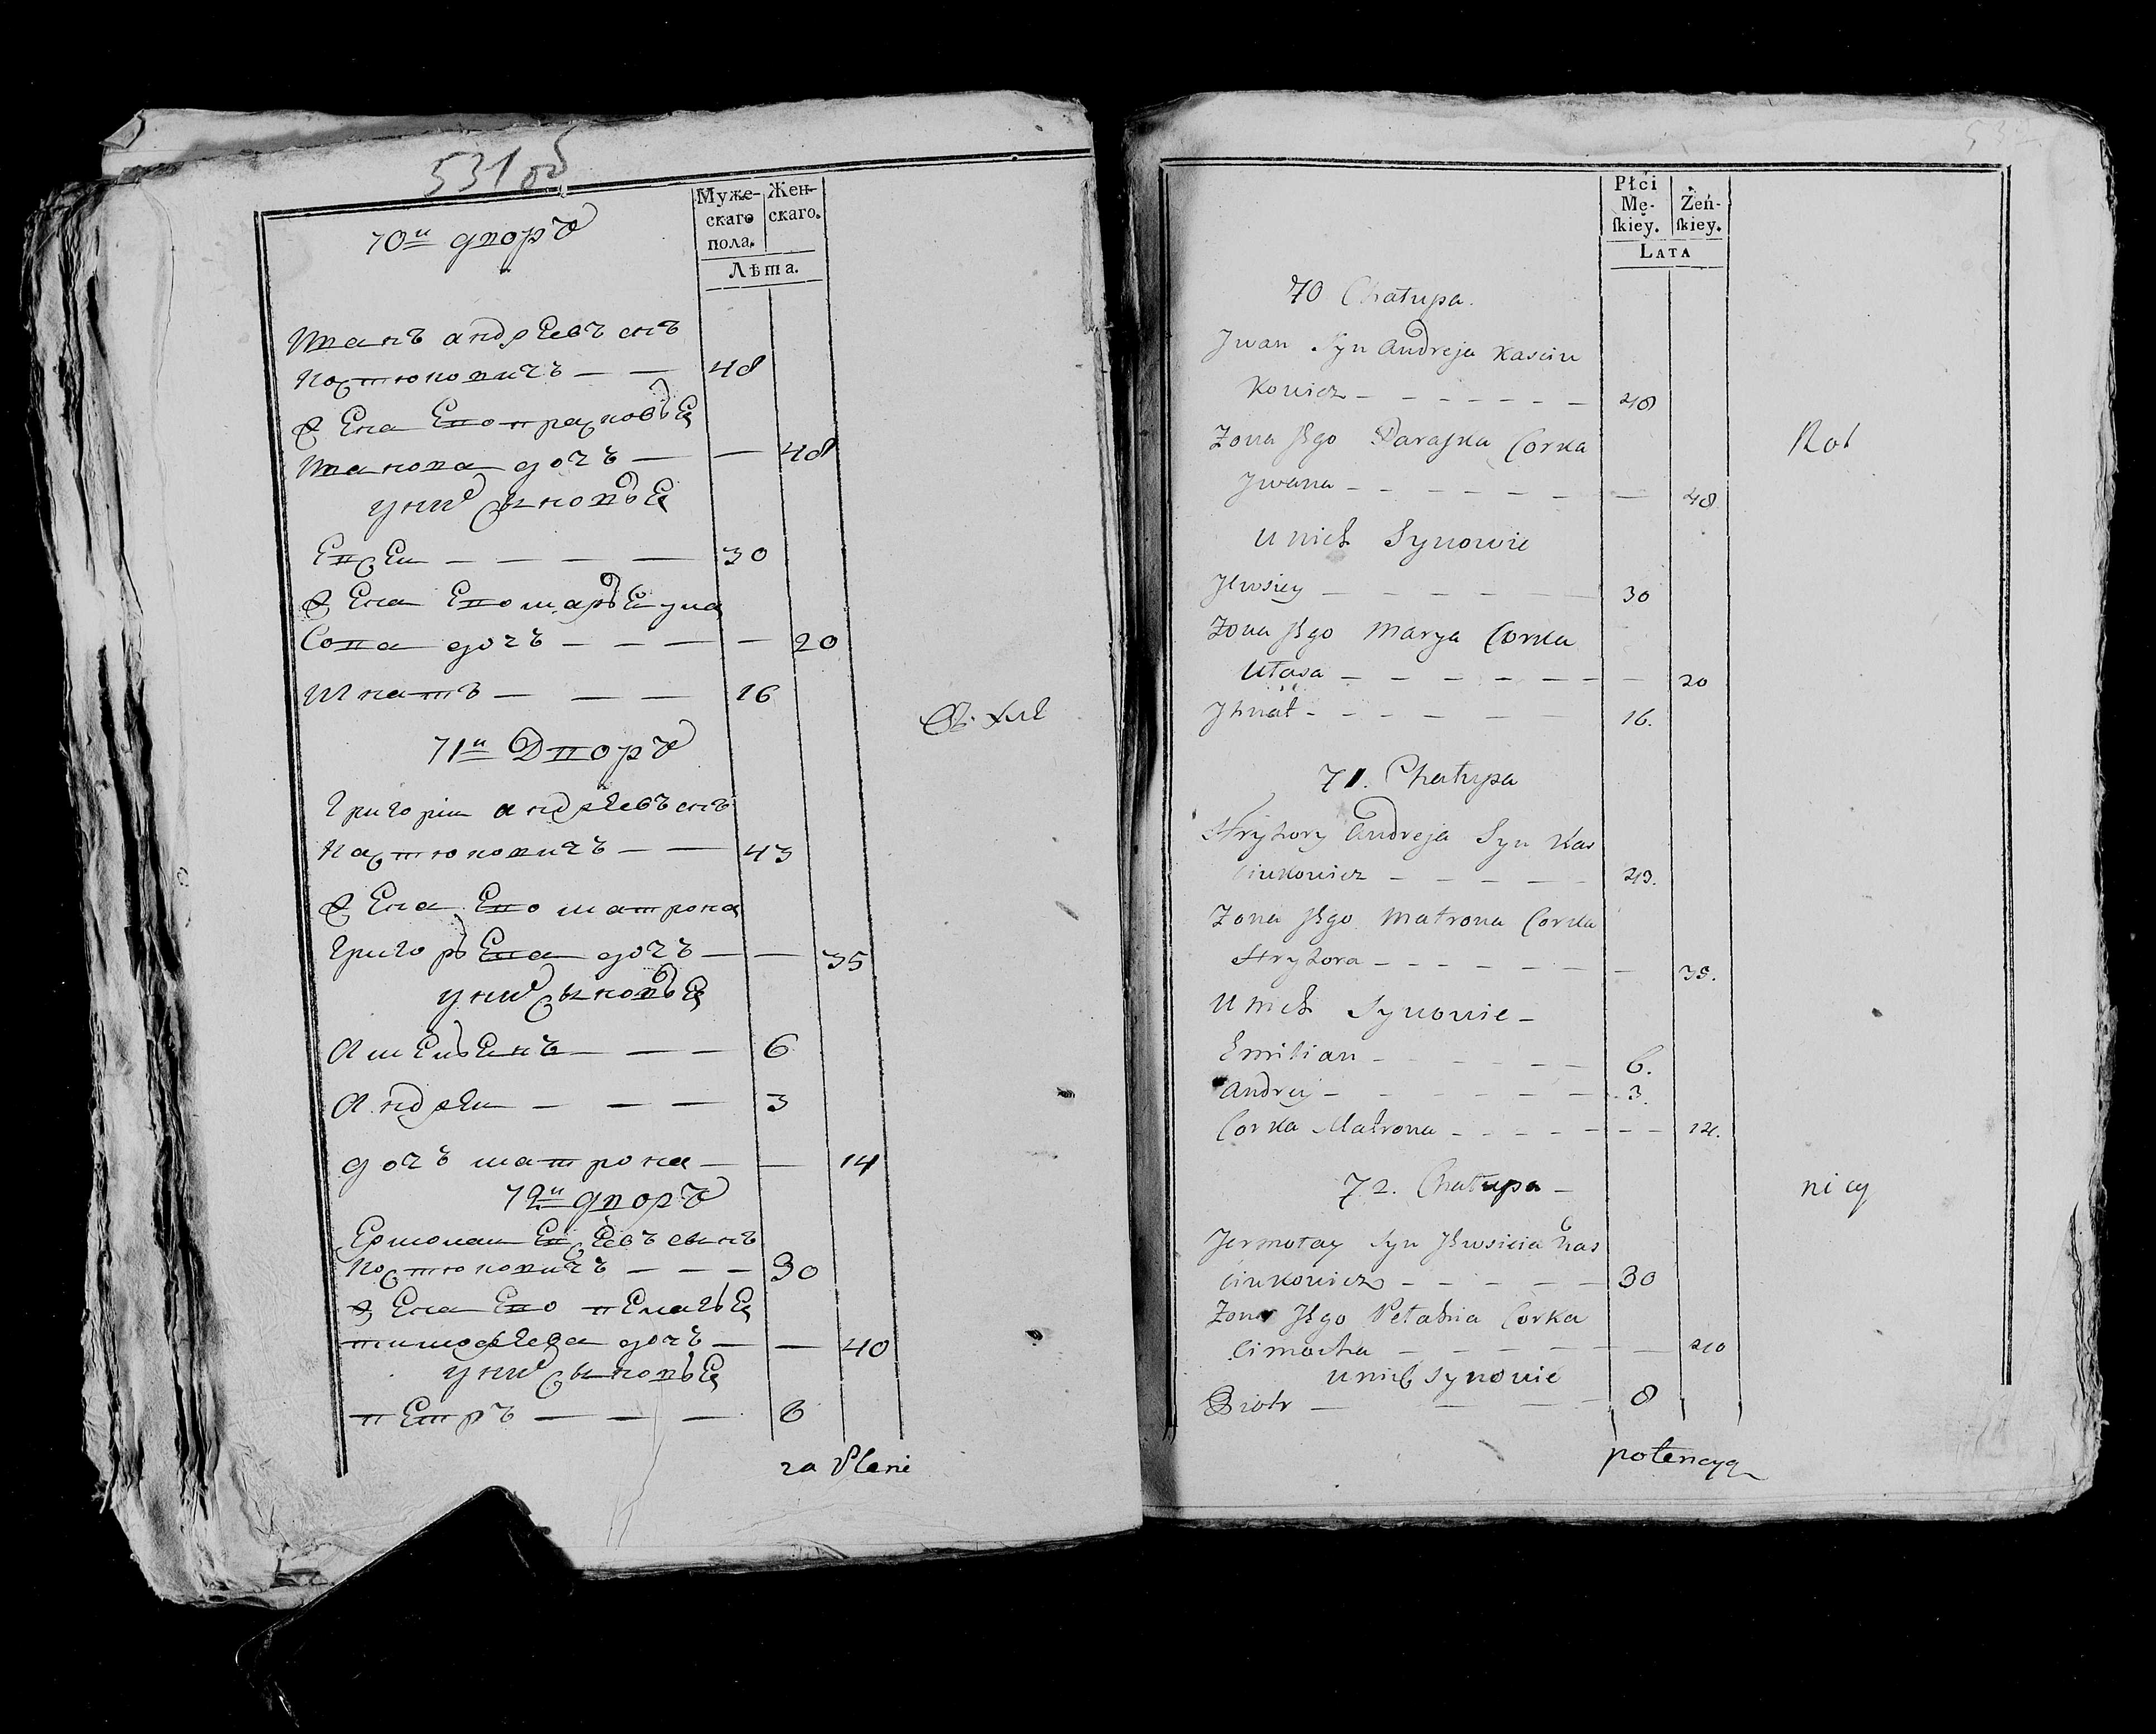 531 об
Муже-
скаго
пола.
Жен-
скаго.
Лѣта.
70й дворъ
Иванъ андрѣевъ снъ
Костюковичъ — — 48
Жена Ево прасковья
Иванова дочъ — — 48
у них сыновья
Евсеи — — — — 30
Жена Ево марья ула
сова дочъ — — — — 20
Игнатъ — — — 16
71й Дворъ
григорiи андрѣевъ снъ
Костюковичъ — — 43
Жена Ево матрона
григорьева дочъ — — 35
у них сыновья
Амельенъ — — — 6
Андрѣи — — — 3
дочъ матрона — — 14
72й дворъ
Ермолаи Евсѣевъ сынъ
Костюковичъ — — — 30
Жена Ево пелагья
тимофѣева дочъ — — 40
у них сыновья
петръ — — — 8
za Pleni
Płci
Mę-
ſkiey.
Żeń-
ſkiey.
LATA
70 Chałupa.
Jwan Syn Andreja Kasciu
Kowicz - - - - - - - 48
Zona Jego Paraska Corka
Jwana - - - - - - - 48
U nich Synowie
Jewsiey - - - - - - 30
Zona Jego Marya Corka
Ułasa - - - - - - - 20
Jhnat - - - - - - 16.
71. Chałupa
Hryhory Andreja Syn Kas
ciukowicz - - - - - 43.
Zona Jego Matrona Corka
Hryhora - - - - - - - 35.
U nich Synowie -
Emilian - - - - - - 6.
Andrey - - - - - - - 3.
Corka Matrona - - - - - - - 14.
72. Chałupa -
Jermołay Syn Jewsieia Kas
ciukowicz - - - - - 30
Zona Jego Pełahia Corka
Cimocha - - - - - - - 40
U nich Synowie
Piotr - - - - 8
Rol
nicy
potencyą